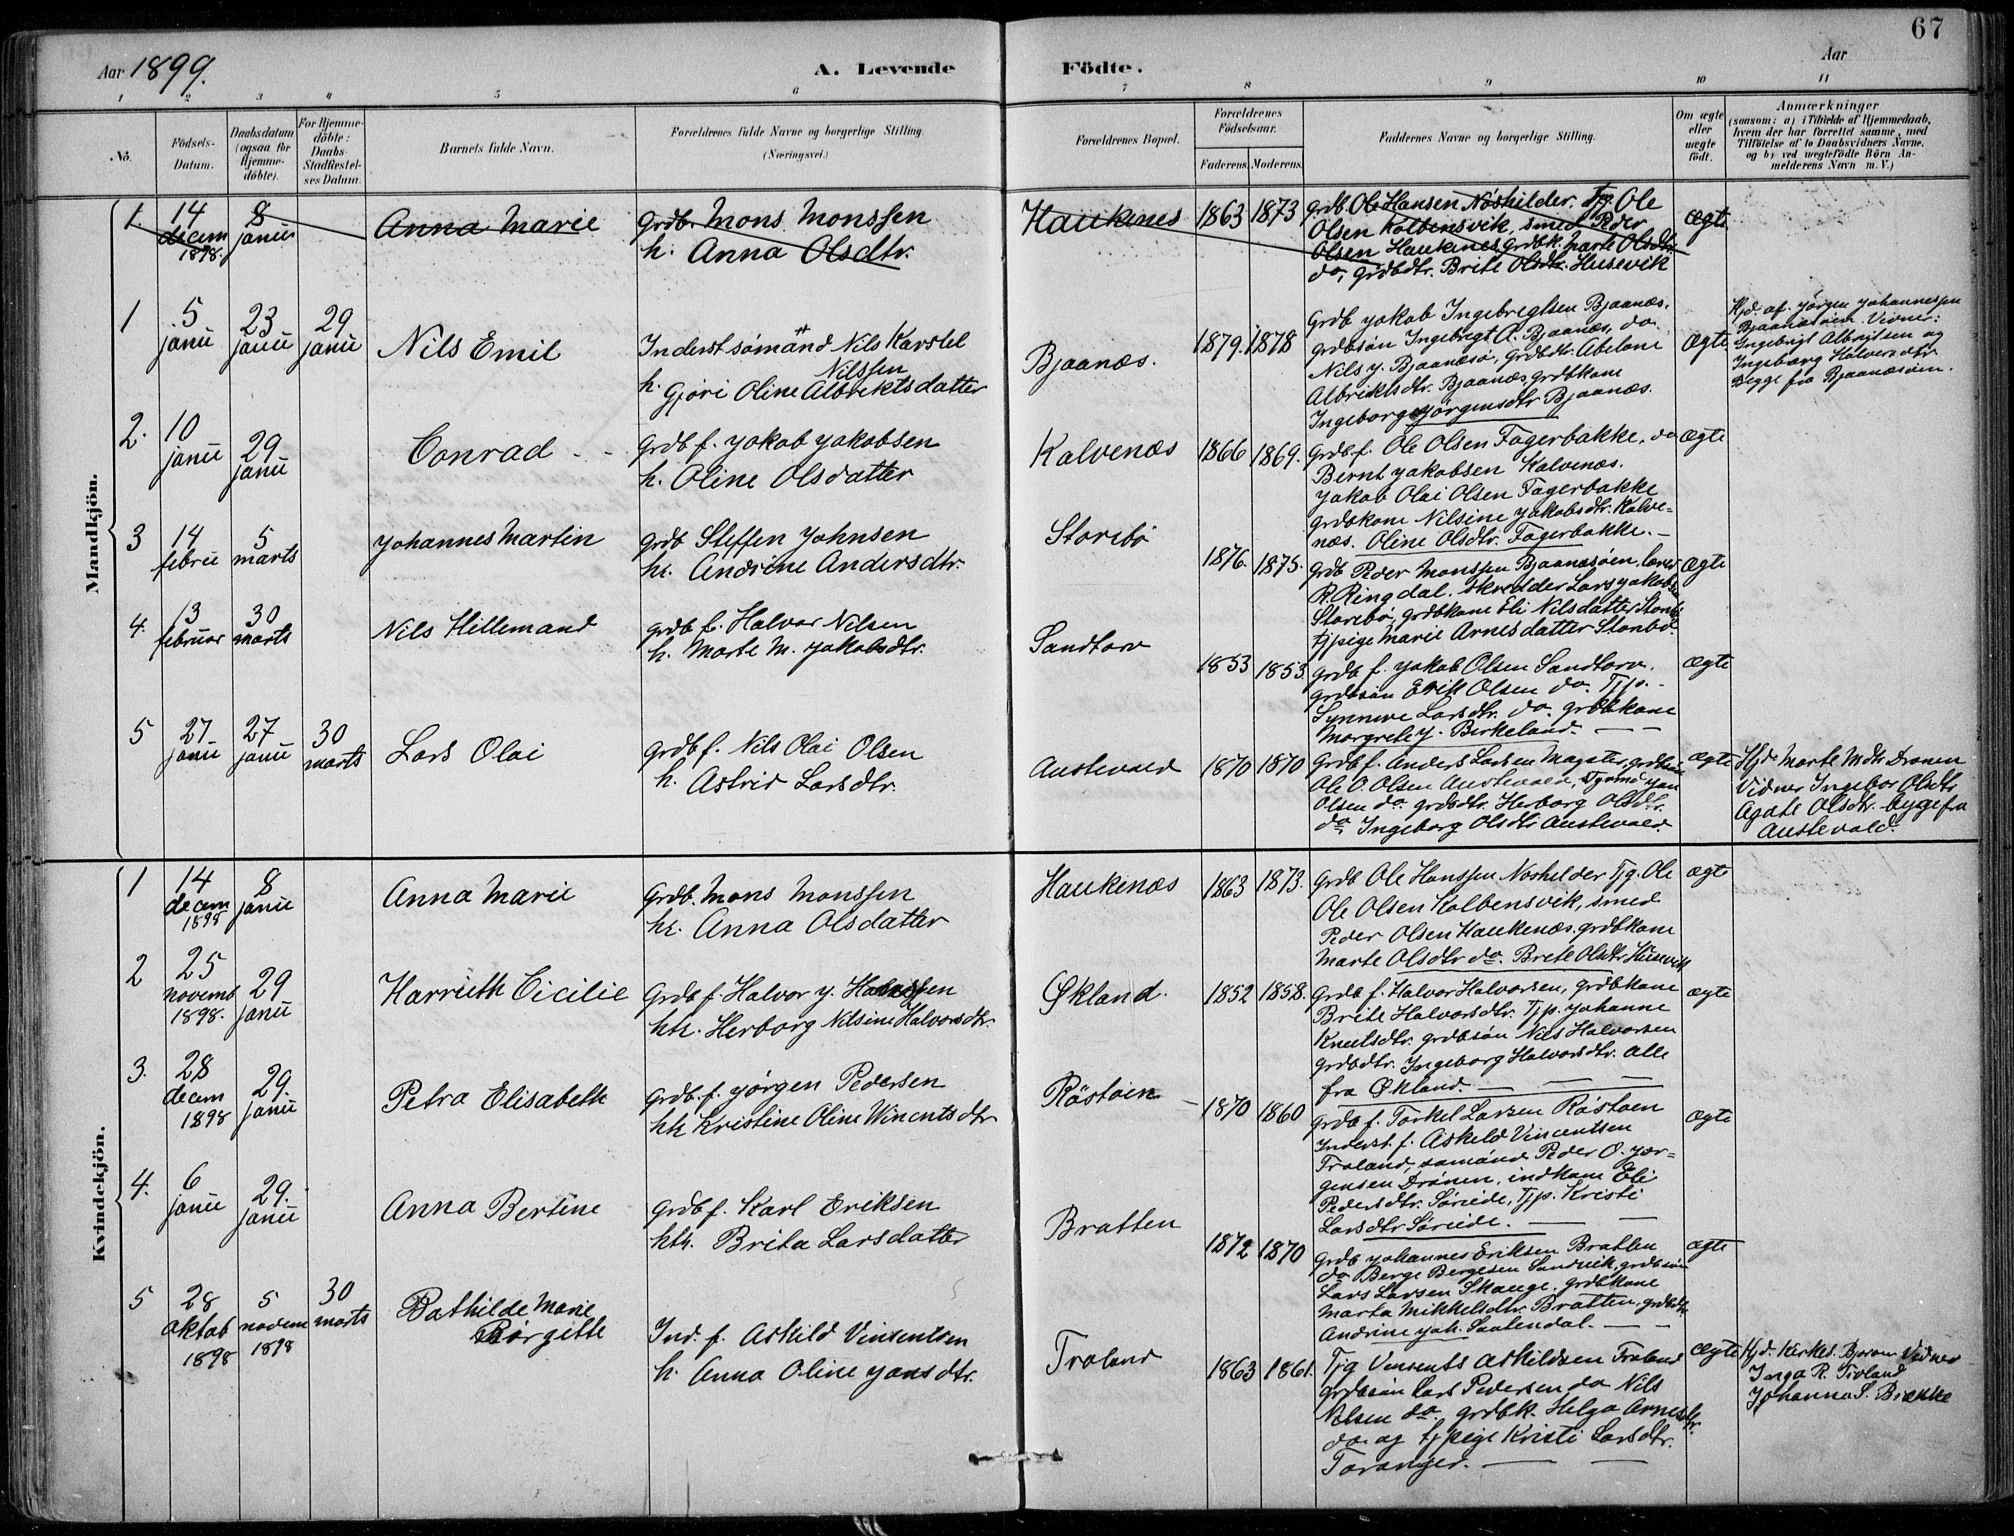 67
Aar 1899.
A. Levende Födte.
Aar
1 2 3 4 5 6 7 8 9 10 11
No.
Födsels-
Datum.
Daabsdatum
(ogsaa for
Hjemme-
döbte).
For Hjemme-
döbte:
Daabs-
Stadfæstel-
ses Datum.
Barnets fulde Navn.
Forældrenes fulde Navne og borgerlige Stilling.
(Næringsvei.)
Forældrenes Bopæl.
Forældrenes
Födselsaar.
Faderens. Moderens.
Faddernes Navne og borgerlige Stilling.
Om ægte
eller
uægte
født.
Anmærkninger
(saasom: a) i Tilfælde af Hjemmedaab,
hvem der har forrettet samme, med
Tilföielse af to Daabsvidners Navne,
og b) ved uægtefödte Börn An-
melderens Navn m. V.)
Mandkjön.
1. 14 decem 1898. 8 januu Anna Marie
Grdb. Mons Monssen
h. Anna Olsdtr.
Haukenes 1863 1873
grdb. Ole Hansen Nöshilder. Tjg Ole
Olsen Kolbensvik, smed Peder
Olsen Haukenes grdbk. Marte Olsdtr
do, grdbdtr. Brite Olsdtr. Husevik
ægte
1 5 januu 23 januu 29 januu Nils Emil
Inderst sömänd Nils Karstel
Nilssen
h. Gjöri Oline Albriktsdatter
Bjaanæs. 1879. 1878
Grdb Jakob Ingebreglsen Bjaanæs,
grdbsön Ingebrigt A. Bjaanæs, do
Nils J. Bjaanæsö, grdbdtr. Abelone
Albriktsdtr. Bjaanæs grdbkone
Ingeborg Jörgensdtr Bjaanæs.
ægte
Hjd. af Jörgen Johannessen
Bjaanæsöen. Vidner:
Ingebrigt Albrigtsen og
Ingeborg Halvorsdtr
Begge fra Bjaanæsöen.
2. 10 januu 29 januu Conrad
Grdb f. Jakob Jakobsen
h. Oline Olsdatter
Kalvenæs 1866 1869.
grdb f. Ole Olsen Fagerbakke, do
Bernt Jakobsen Kalvenæs.
Jakob Olai Olsen Fagerbakke
grdbkone Nilsine Jakobsdtr. Kalve-
næs. Oline Olsdtr. Fagerbakke.
ægte
3 14 februu 5 marts Johannes Martin
Grdb Steffen Johnsen
h. Andrine Andersdtr.
Storebö 1876. 1875.
grdb Peder Monssen Bjaanæsöen, lærer
P. Ringdal. skrædder Lars Jakobs
Storebö, grdbkone Eli Nilsdatter Storeb
tjpige Marie Arnesdatter Storebö.
ægte
4. 13 februar 30 marts Nils Hillemand
grdb f. Halvor Nilsen
h. Marte M. Jakobsdtr.
Sandtorv 1853 1853.
grdb f. Jakob Olsen Sandtorv.
grdbsön Erik Olsen do. Tjp.
Synneve Larsdtr. do. grdbkone
Margrete J. Birkeland.
ægte
5 27 januu 27 januu 30 marts Lars Olai
grdb f. Nils Olai Olsen
h. Astrid Larsdtr.
Austevold 1870 1870
grdb f. Anders Larsen Møgster, grdbsön
Ole O. Olsen Austevold, Jan
Olsen do grdbdtr. Herborg Olsdtr.
do Ingeborg Olsdtr Austevold.
ægte
Hjd. Marte Mdtr Drönen
Vidner Ingebor Olsdtr
Agate Olsdtr. bygge fra
Austevold.
Kvindekjön.
1 14 decem 1898 8 januu Anna Marie
Grdb. Mons Monssen
h. Anna Olsdatter
Haukenæs 1863 1873.
Grdb Ole Hanssen Nöshilder Tjg. Ole
Ole Olsen Kolbensvik, smed
Peder Olsen Haukenæs, grdbkone
Marte Olsdtr do. Brite Olsdtr. Husevik
ægt
2 25 novemb 1898. 29 januu Harrieth Cicilie
Grdb f. Halvor J. Halvorssen
h. Herborg Nilsine Halvorsdtr.
Økland. 1852 1858.
Grdb f. Halvor Halvorsen, grdbkone
Brite Halvorsdtr. Tjp. Johanne
Knutsdtr. grdbsön Nils Halvorsen
grdbdtr. Ingeborg Halvorsdtr. alle
fra Økland.
ægte
3. 28 decem 1898 29. januu Petra Elisabeth
grdb. f. Jörgen Pedersen
h. Kristine Oline Vincentsdtr
Röstöen 1870 1860
grdb f. Torkel Larsen Röstöen
Inderst. f. Askild Vincentsen
Troland, sømänd Peder O. Jør-
gensen Drönen, indkone Eli
Pedersdtr. Söreide, Tjp. Kristi
Larsdtr Söreide.
ægte
4. 6 januu 29. januu Anna Bertine
grdb f. Karl Eriksen
h. Brita Larsdatter
Bratten 1872 1870
Grdb Johannes Eriksen Bratten
do Berge Bergesen Sandvik, grdbsön
Lars Larsen Skauge, grdbkone
Marta Mikkelsdtr. Bratten, grdbdtr.
Andrine Joh. Saatendal.
ægte
5 28 oktob 1898 5 novem 1898 30 marts Bathilde Marie
Börgitte
Ind. f. Askild Vinsentsen
h. Anna Oline Jansdtr.
Troland 1863 1861.
Tjg Vinsents Askildsen Troland
grdbsön Lars Pedersen do Nils
Nilsen do. grdbk. Helga Arnesdtr.
do og tjpige Kristi Larsdtr.
Toranger.
ægte
Hjd. Kirkes. Vidner
Inga R. Troland
Johanna S. Biække